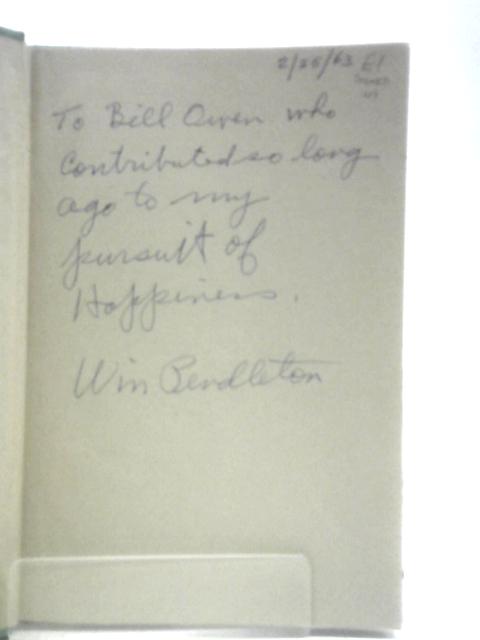 2/25/63 E!
To Bill Owen who
contributed so long
ago to my
pursuit of
Happiness.
Win Pendleton